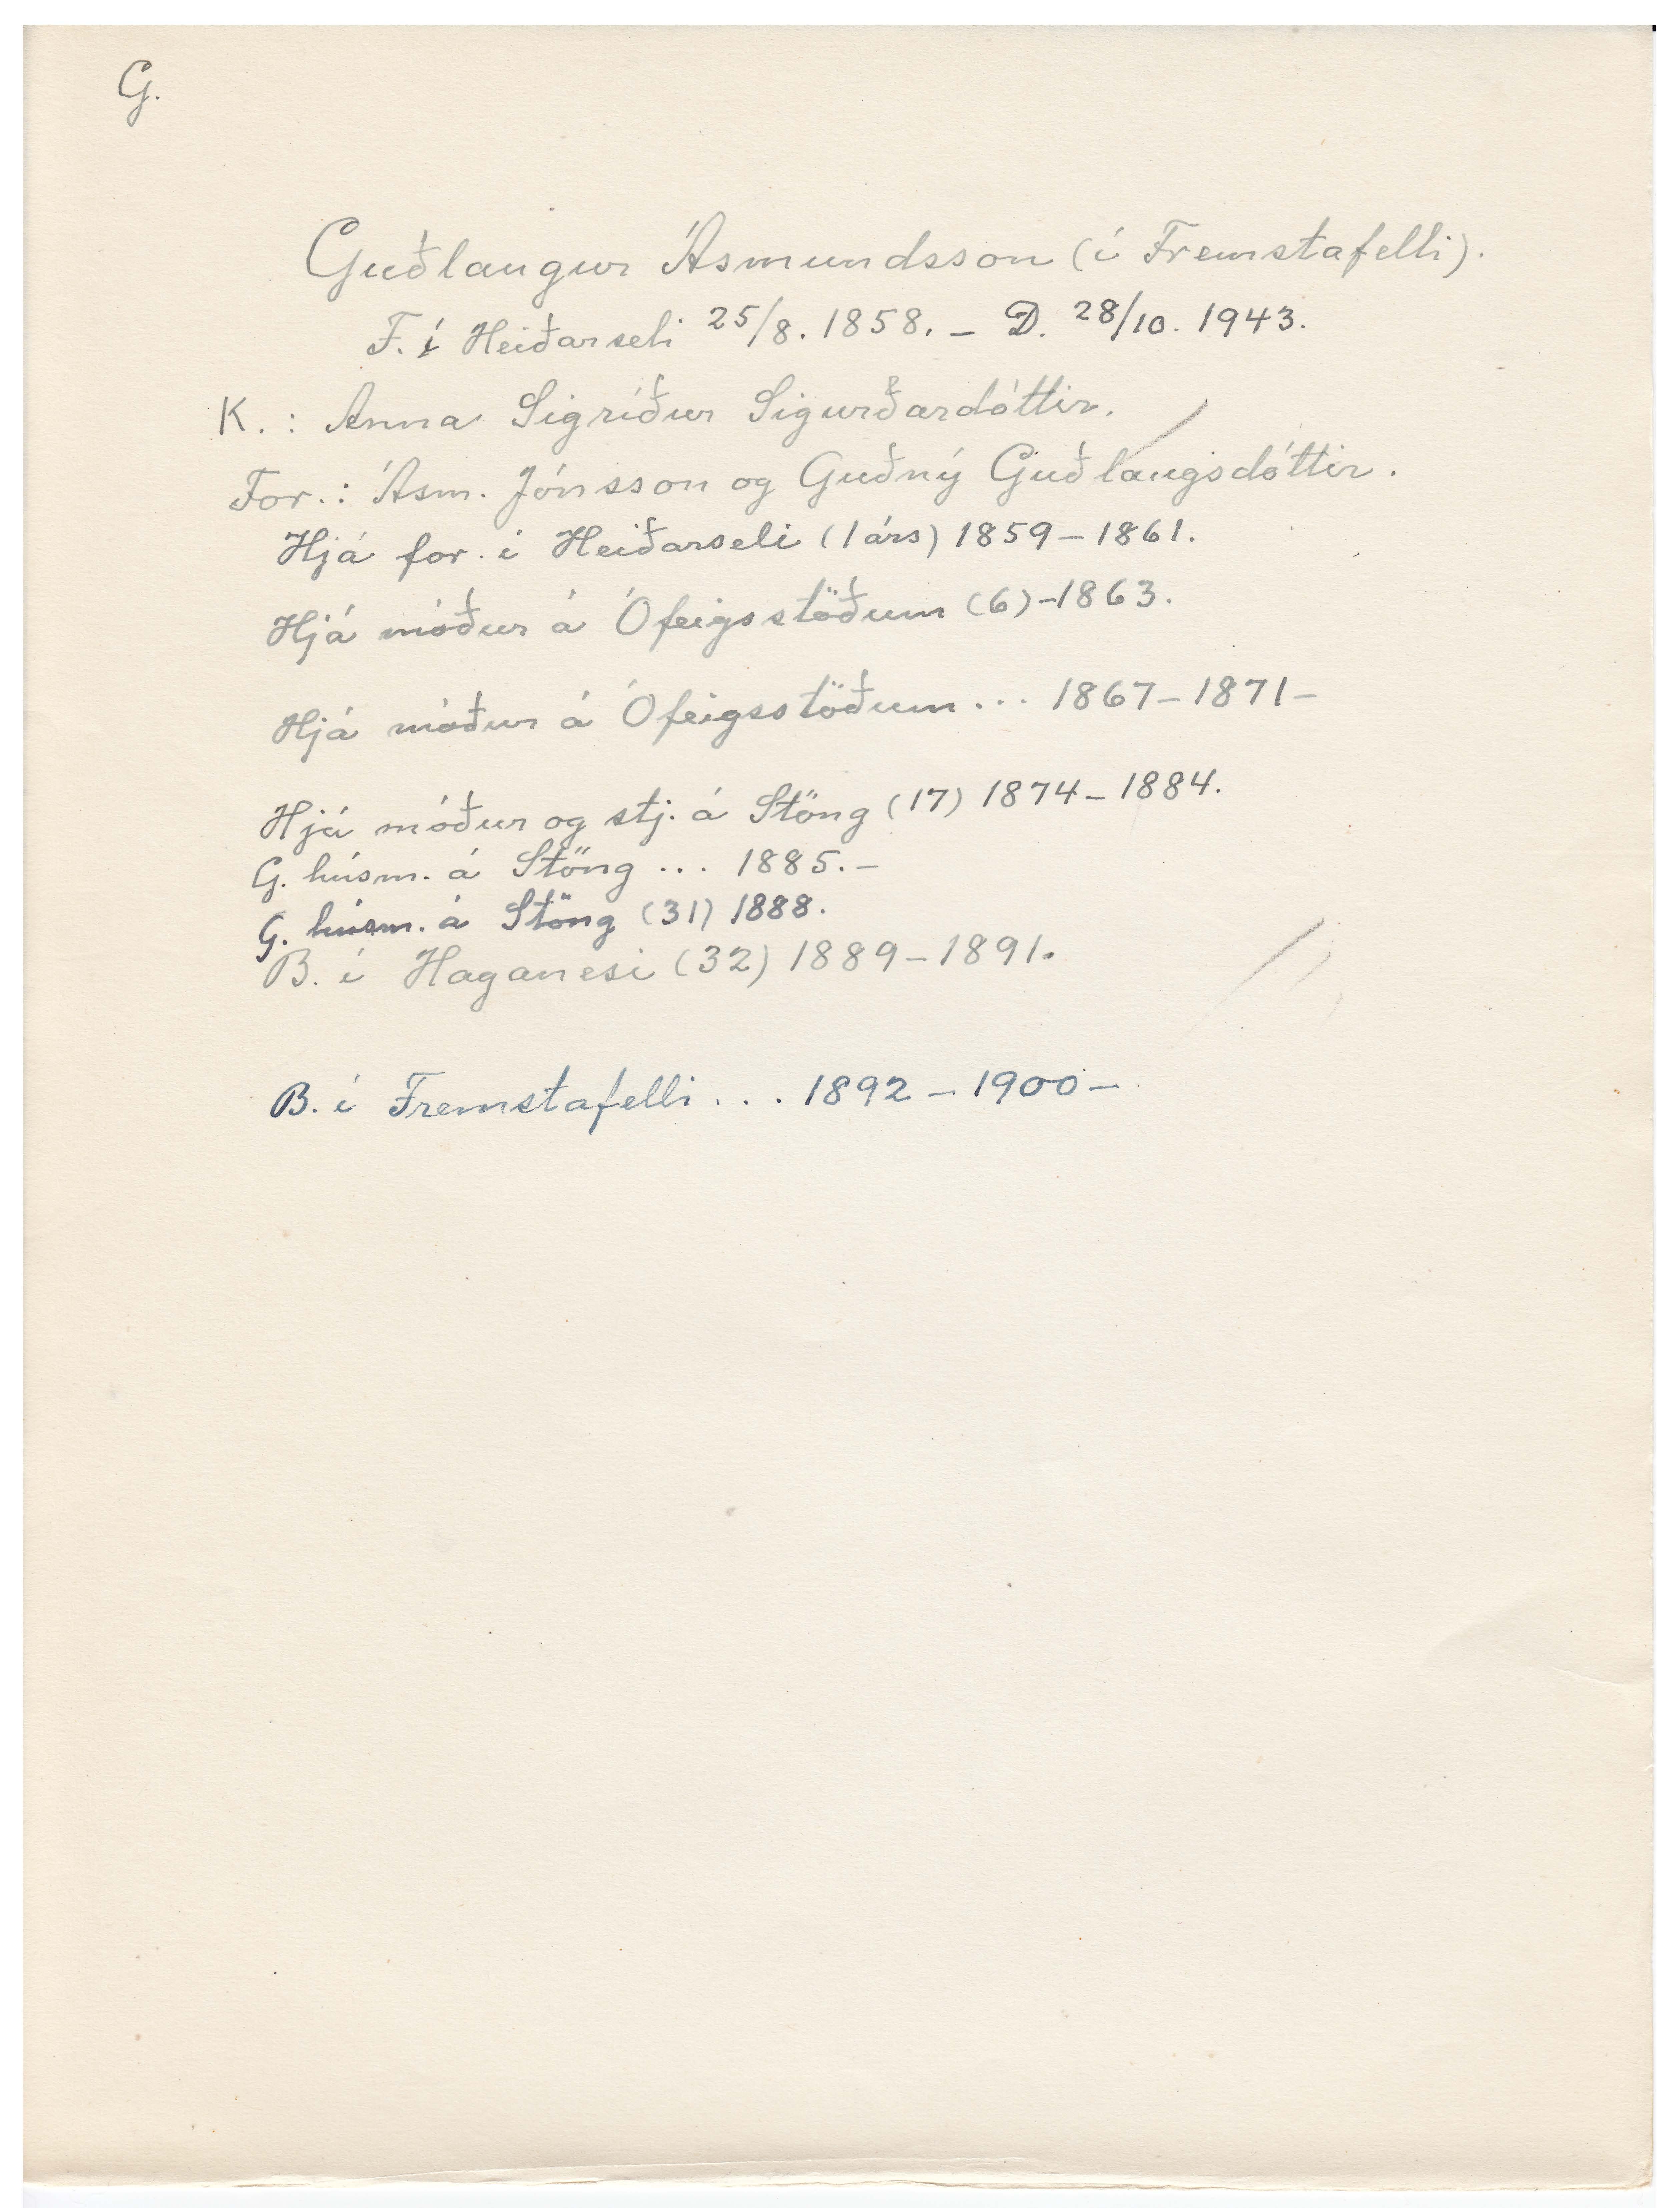 G.
Guðlaugur Ásmundsson (í Fremstafelli).
F. í Heiðarseli 25/8. 1858. – D. 28/10. 1943.
K.: Anna Sigríður Sigurðardóttir.
For.: Ásm. Jónsson og Guðný Guðlaugsdóttir.
Hjá for. í Heiðarseli (1 árs) 1859–1861.
Hjá móður á Ófeigsstöðum (6)–1863.
Hjá móður á Ófeigsstöðum... 1867–1871–
Hjá móður og stj. á Stöng (17) 1874–1884.
G. húsm. á Stöng ... 1885.–
G. húsm. á Stöng (31) 1888.
B. í Haganesi (32) 1889–1891.
B. í Fremstafelli... 1892–1900–